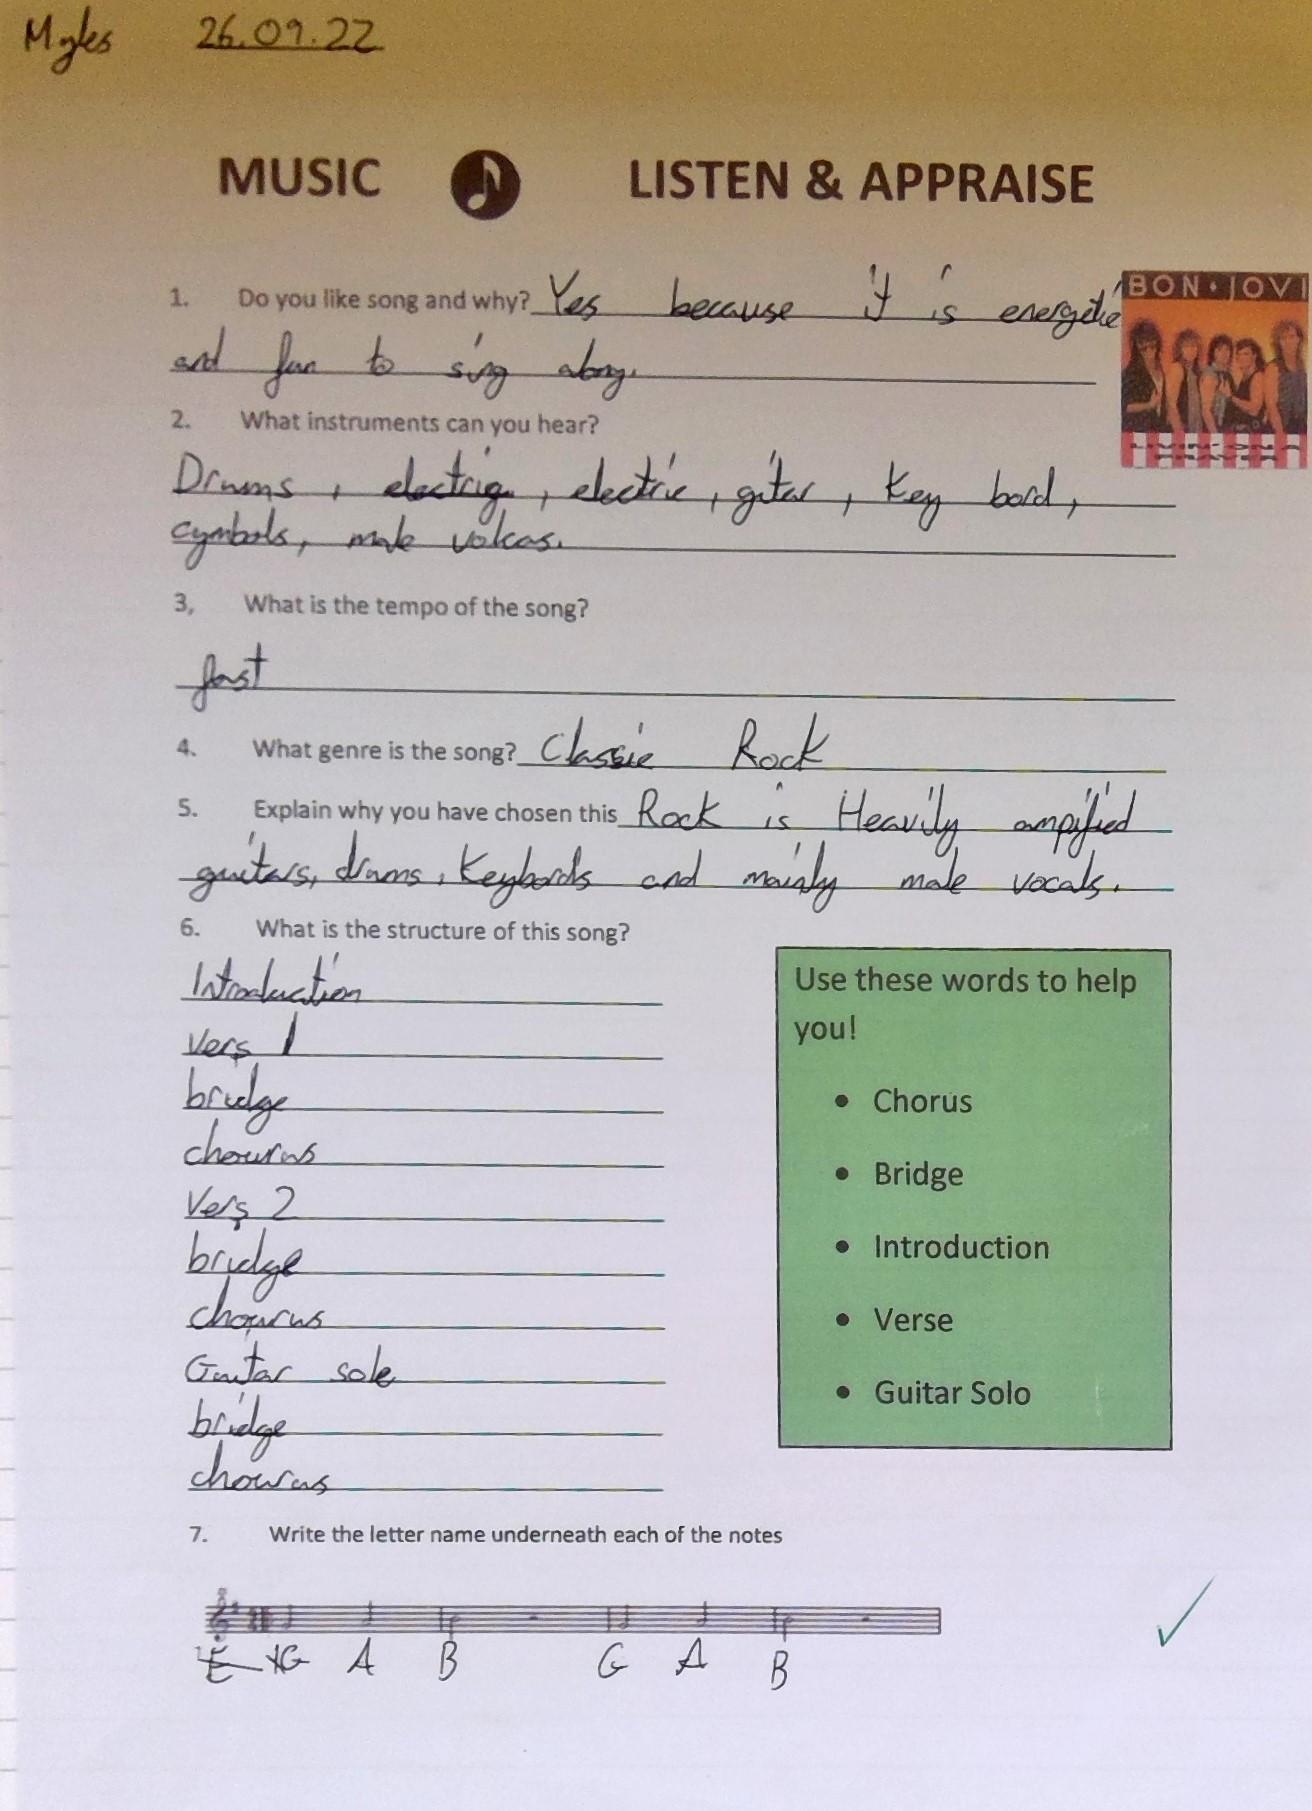 Myles 26.09.22
MUSIC LISTEN & APPRAISE
1. Do you like song and why? Yes because it is energetic
and fun to sing along.
BON • JOVI
2. What instruments can you hear?
Drums, electrig, electric, gitar, Key bord,
cymbols, male volcas.
3, What is the tempo of the song?
fast
4. What genre is the song? Classic Rock
5. Explain why you have chosen this Rock is Heavily ampified
guitars, drums, Keybords and mainly male vocals.
6. What is the structure of this song?
Introduction
Vers 1
bridge
chourus
Vers 2
bridge
chourus
Guitar solo
bridge
chourus
Use these words to help
you!
• Chorus
• Bridge
• Introduction
• Verse
• Guitar Solo
7. Write the letter name underneath each of the notes
E G A B G A B